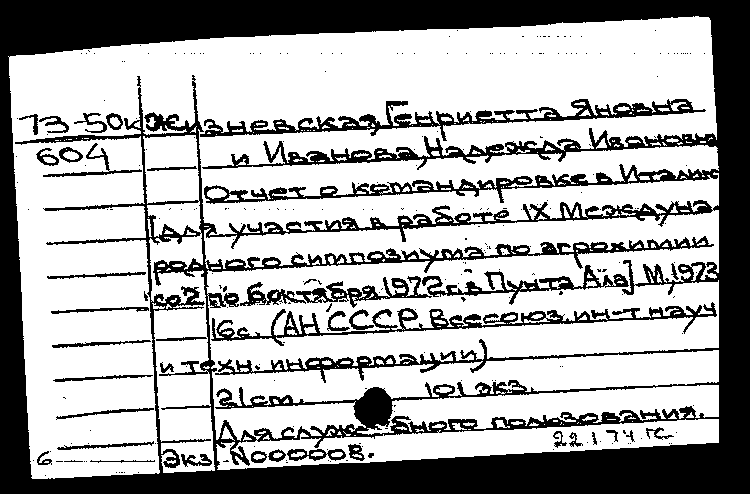 73-50к Жизневская, Генриетта Яновна
604 и Иванова, Надежда Ивановна
Отчет о командировке в Италию
[для участия в работе IX Междуна-
родного симпозиума по агрохимии
со 2 по 6 октября 1972 г. в Пунта Ала] М., 1973
16с. (АН СССР. Всесоюз. ин-т науч
и техн. информации).
21 см. 101 экз.
Для служебного пользования.
22 1 74
6 Экз. N000008.